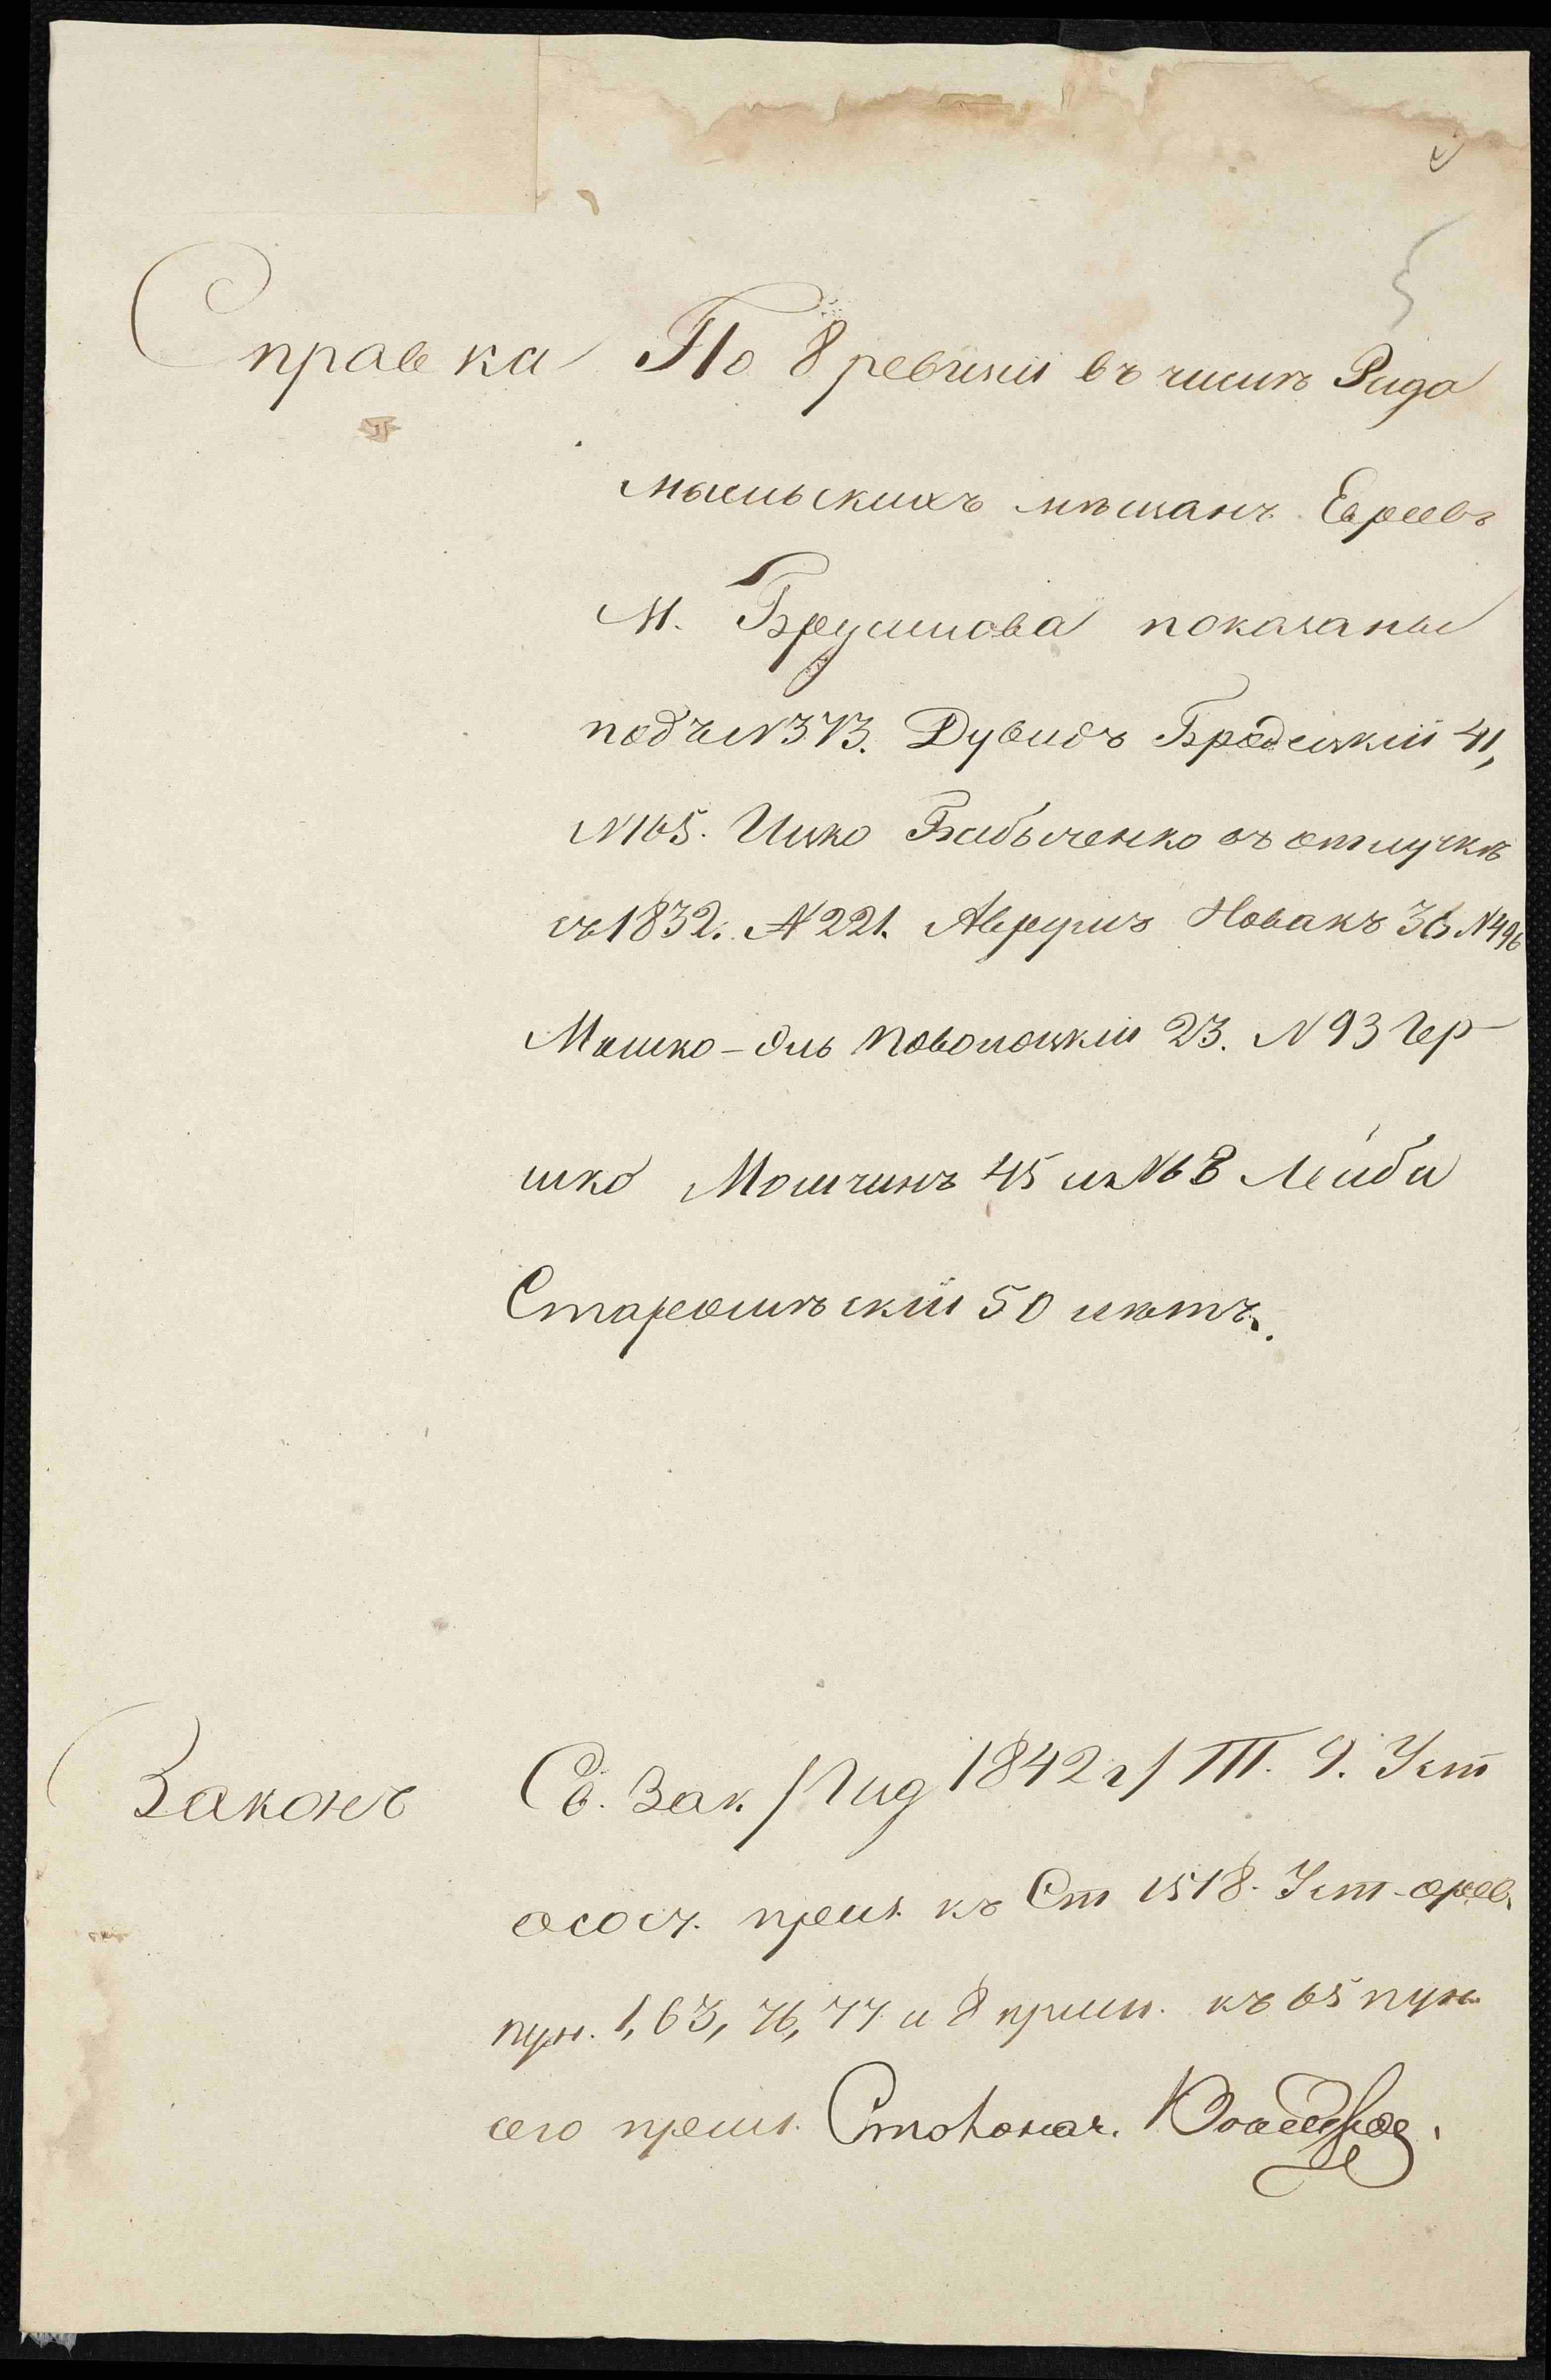 Справка По 8 ревизіи въ числѣ Радо
мысльскихъ мѣщанъ Евреевъ
М. Брусилова показаны
подъ № 373. Дувидъ Бродецкій 41,
№ 165. Ицко Бабыченко въ отлучкѣ
съ 1832. № 221. Аврумъ Новакъ 36 № 496
Мошко-Эль Поволоцкій 23. № 93 Гер
шко Мошчинъ 45 и № 68 Лейба
Старосельскій 50 лѣтъ.
Законъ Св. Зак. /Изд 1842 г/ Т. 9. Уст
о сост. прил. къ Ст 1518. Уст. о рев.
пун. 1, 63, 76, 77 и 8 прим. къ 65 пун.
сего прил. Столонач.